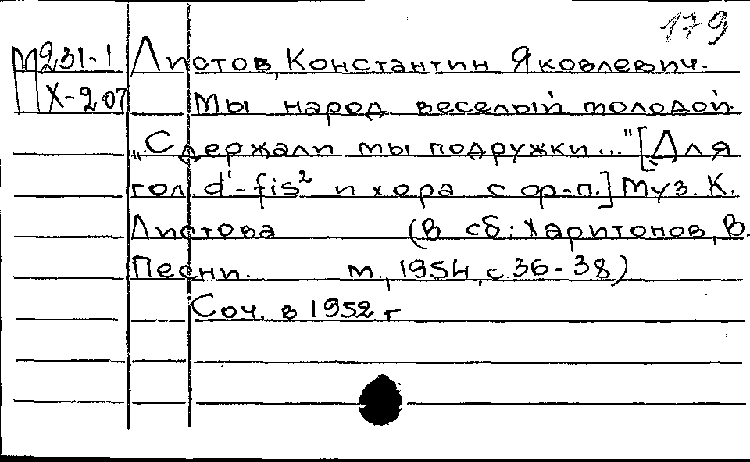 179
М231-1 Листов, Константин Яковлевич.
Х-207 Мы народ веселый молодой.
„Сдержали мы подружки..." [Для
гол. d¹-fis² и хора с ор-п.] Муз. К.
Листова (В сб: Харитонов, В.
Песни. М., 1954, с 36-38)
Соч. в 1952 г